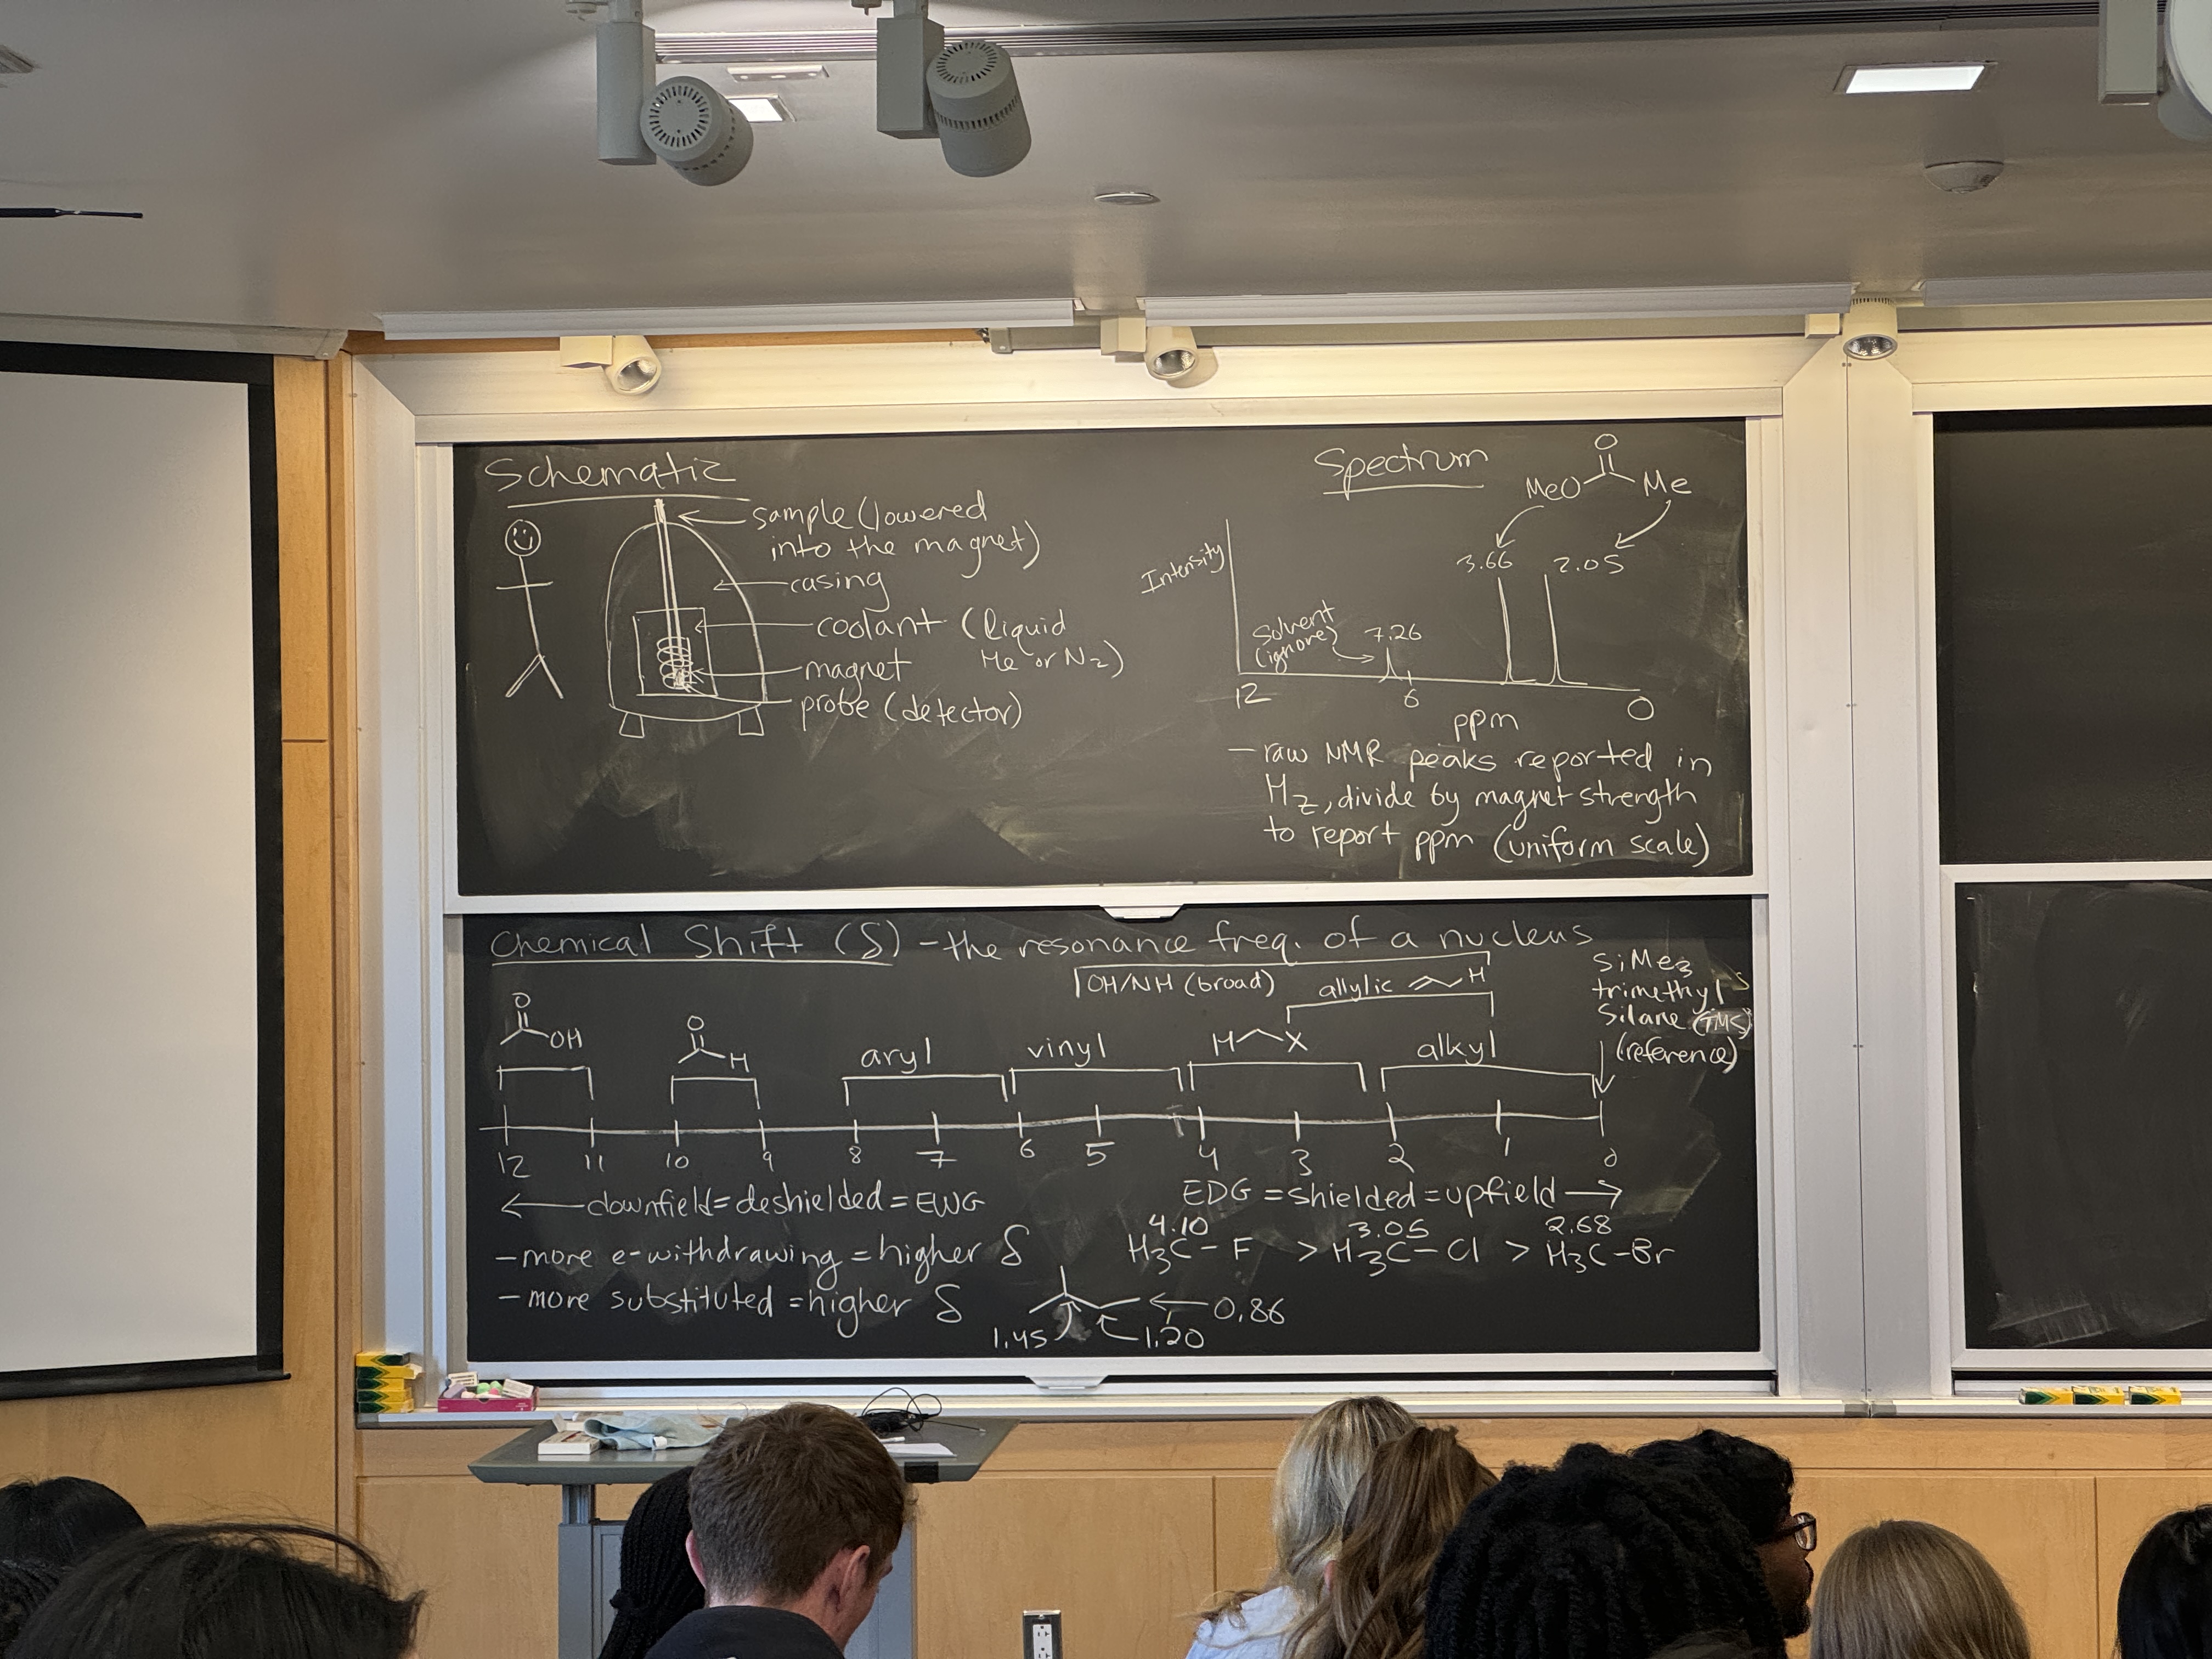 Schematic
sample (lowered
into the magnet)
casing
coolant (liquid
He or N2)
magnet
probe (detector)
Spectrum
O
MeO Me
3.66 2.05
Intensity
Solvent
(ignore)
7.26
12 6 0
ppm
- raw NMR peaks reported in
Hz, divide by magnet strength
to report ppm (uniform scale)
Chemical Shift (δ) - the resonance freq. of a nucleus
OH/NH (broad)
allylic H
SiMe3
trimethyl
Silane (TMS)
(reference)
O
OH
O
H
aryl
vinyl
H X
alkyl
12 11 10 9 8 7 6 5 4 3 2 1 0
← downfield = deshielded = EWG
EDG = shielded = upfield →
- more e-withdrawing = higher δ
4.10 3.05 2.68
H3C-F > H3C-Cl > H3C-Br
- more substituted = higher δ
0.86
1.45
1.20